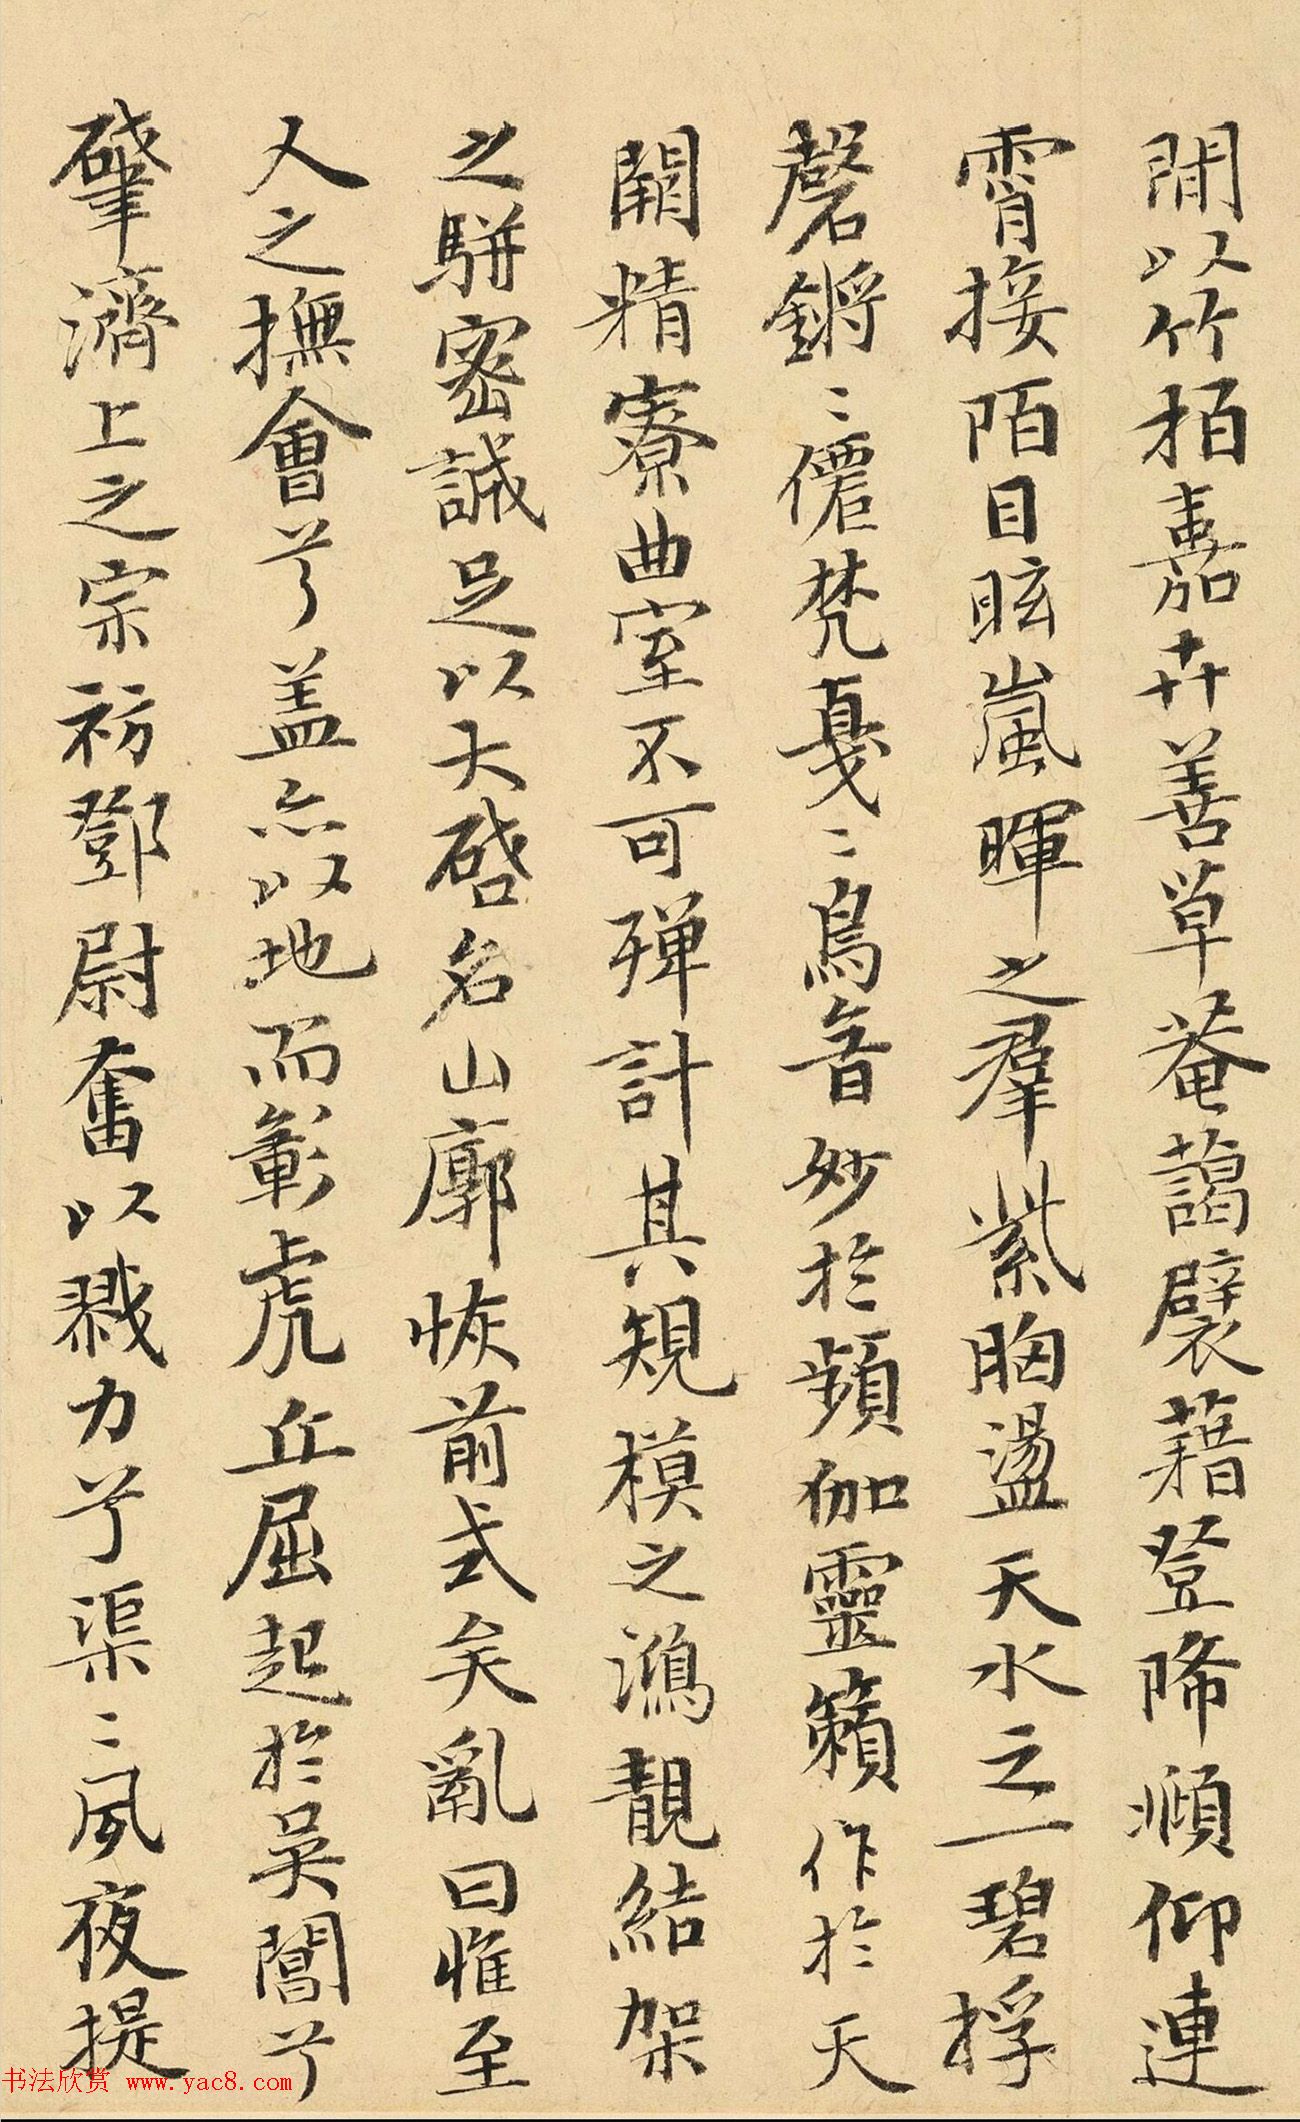 間以竹栢嘉卉善草菴藹襞藉登降順仰連
霄接陌目眩嵐暉之羣紫胸盪天水之一碧捊
磬鏘〻僊梵戞〻鳥音妙於頻伽靈籟作於天
闕精寮曲室不可殫計其規模之鴻靚結架
之駢密誠足以大啓名山廓恢前式矣亂曰惟至
人之撫會兮盖亦以地而彰虎丘屈起於吳閶兮
肇濟上之宗祊鄧尉奮以戮力兮渠〻夙夜提
书法欣赏 www.yac8.com